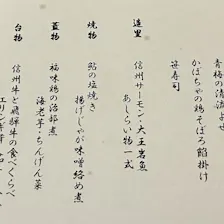 青梅の清流よせ
かぼちゃの鶏そぼろ餡掛け
笹寿司
造里
信州サーモン・大王岩魚
あしらい物一式
焼物
鮎の塩焼き
揚げじゃが味噌絡め煮
蓋物
福味鶏の治部煮
海老芋・ちんげん菜
台物
信州牛と飛騨牛の食べくらべ
エリンギ